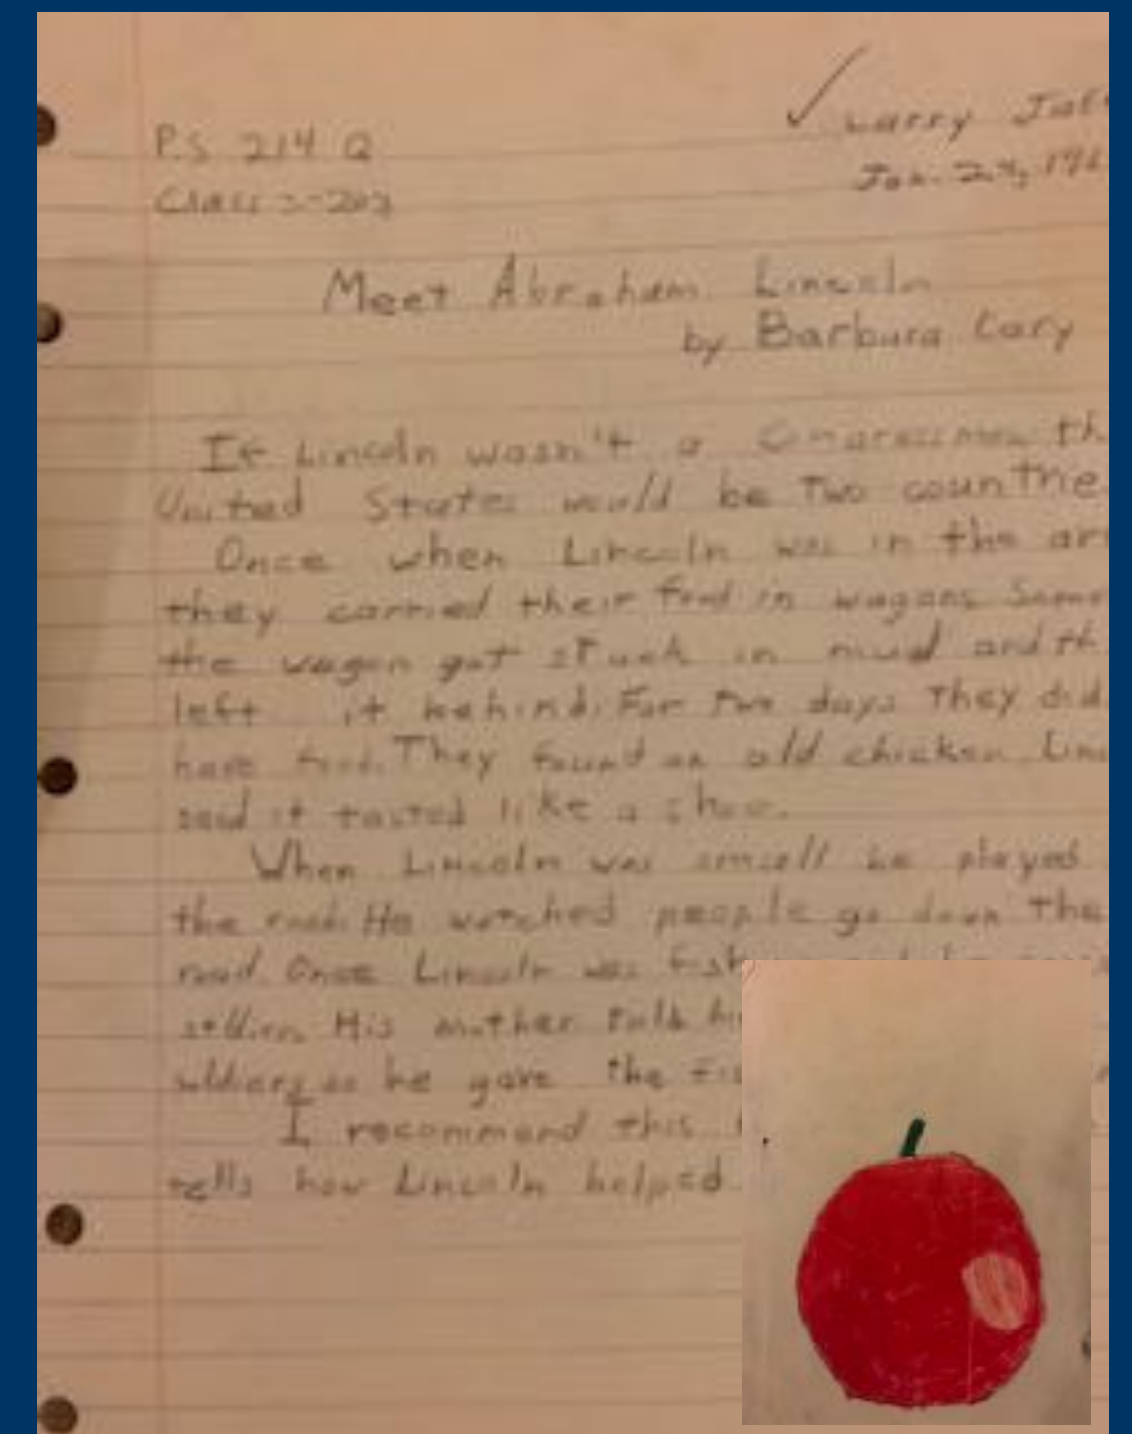 P.S. 214 Q
Class 2-203
Larry
Jan. 24, 196
Meet Abraham Lincoln
by Barbara Cary
If Lincoln wasn't a Congressman th
United States would be Two countrie
Once when Lincoln was in the ar
they carried their food in wagons Some
the wagon got stuck in mud and th
left it behind. For two days They did
have food. They found an old chicken Linc
said it tasted like a shoe.
When Lincoln was small he played
the road. He watched people go down The
road. Once Lincoln was fish
His mother told hi
soldiers so he gave the fis
I recommend this
tells how Lincoln helped